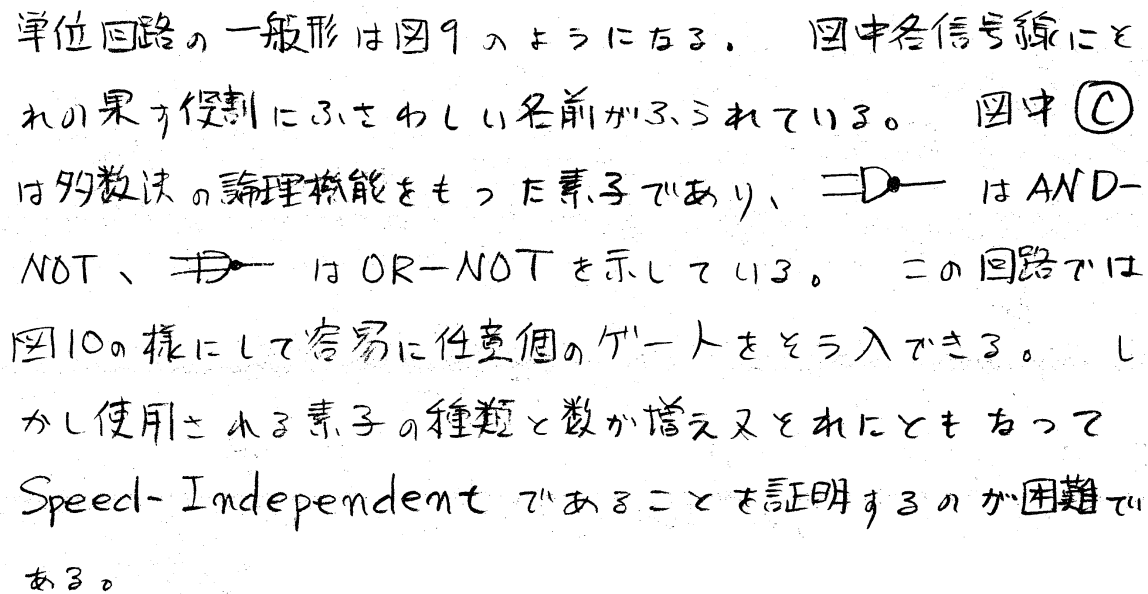 単位回路の一般形は図9のようになる。 図中各信号線にそ
れの果す役割にふさわしい名前がふられている。 図中 Ⓒ
は多数決の論理機能をもった素子であり、 は AND-
NOT、 は OR-NOT を示している。 この回路では
図10の様にして容易に任意個のゲートをそう入できる。 し
かし使用される素子の種類と数が増え又それにともなって
Speed-Independent であることを証明するのが困難で
ある。